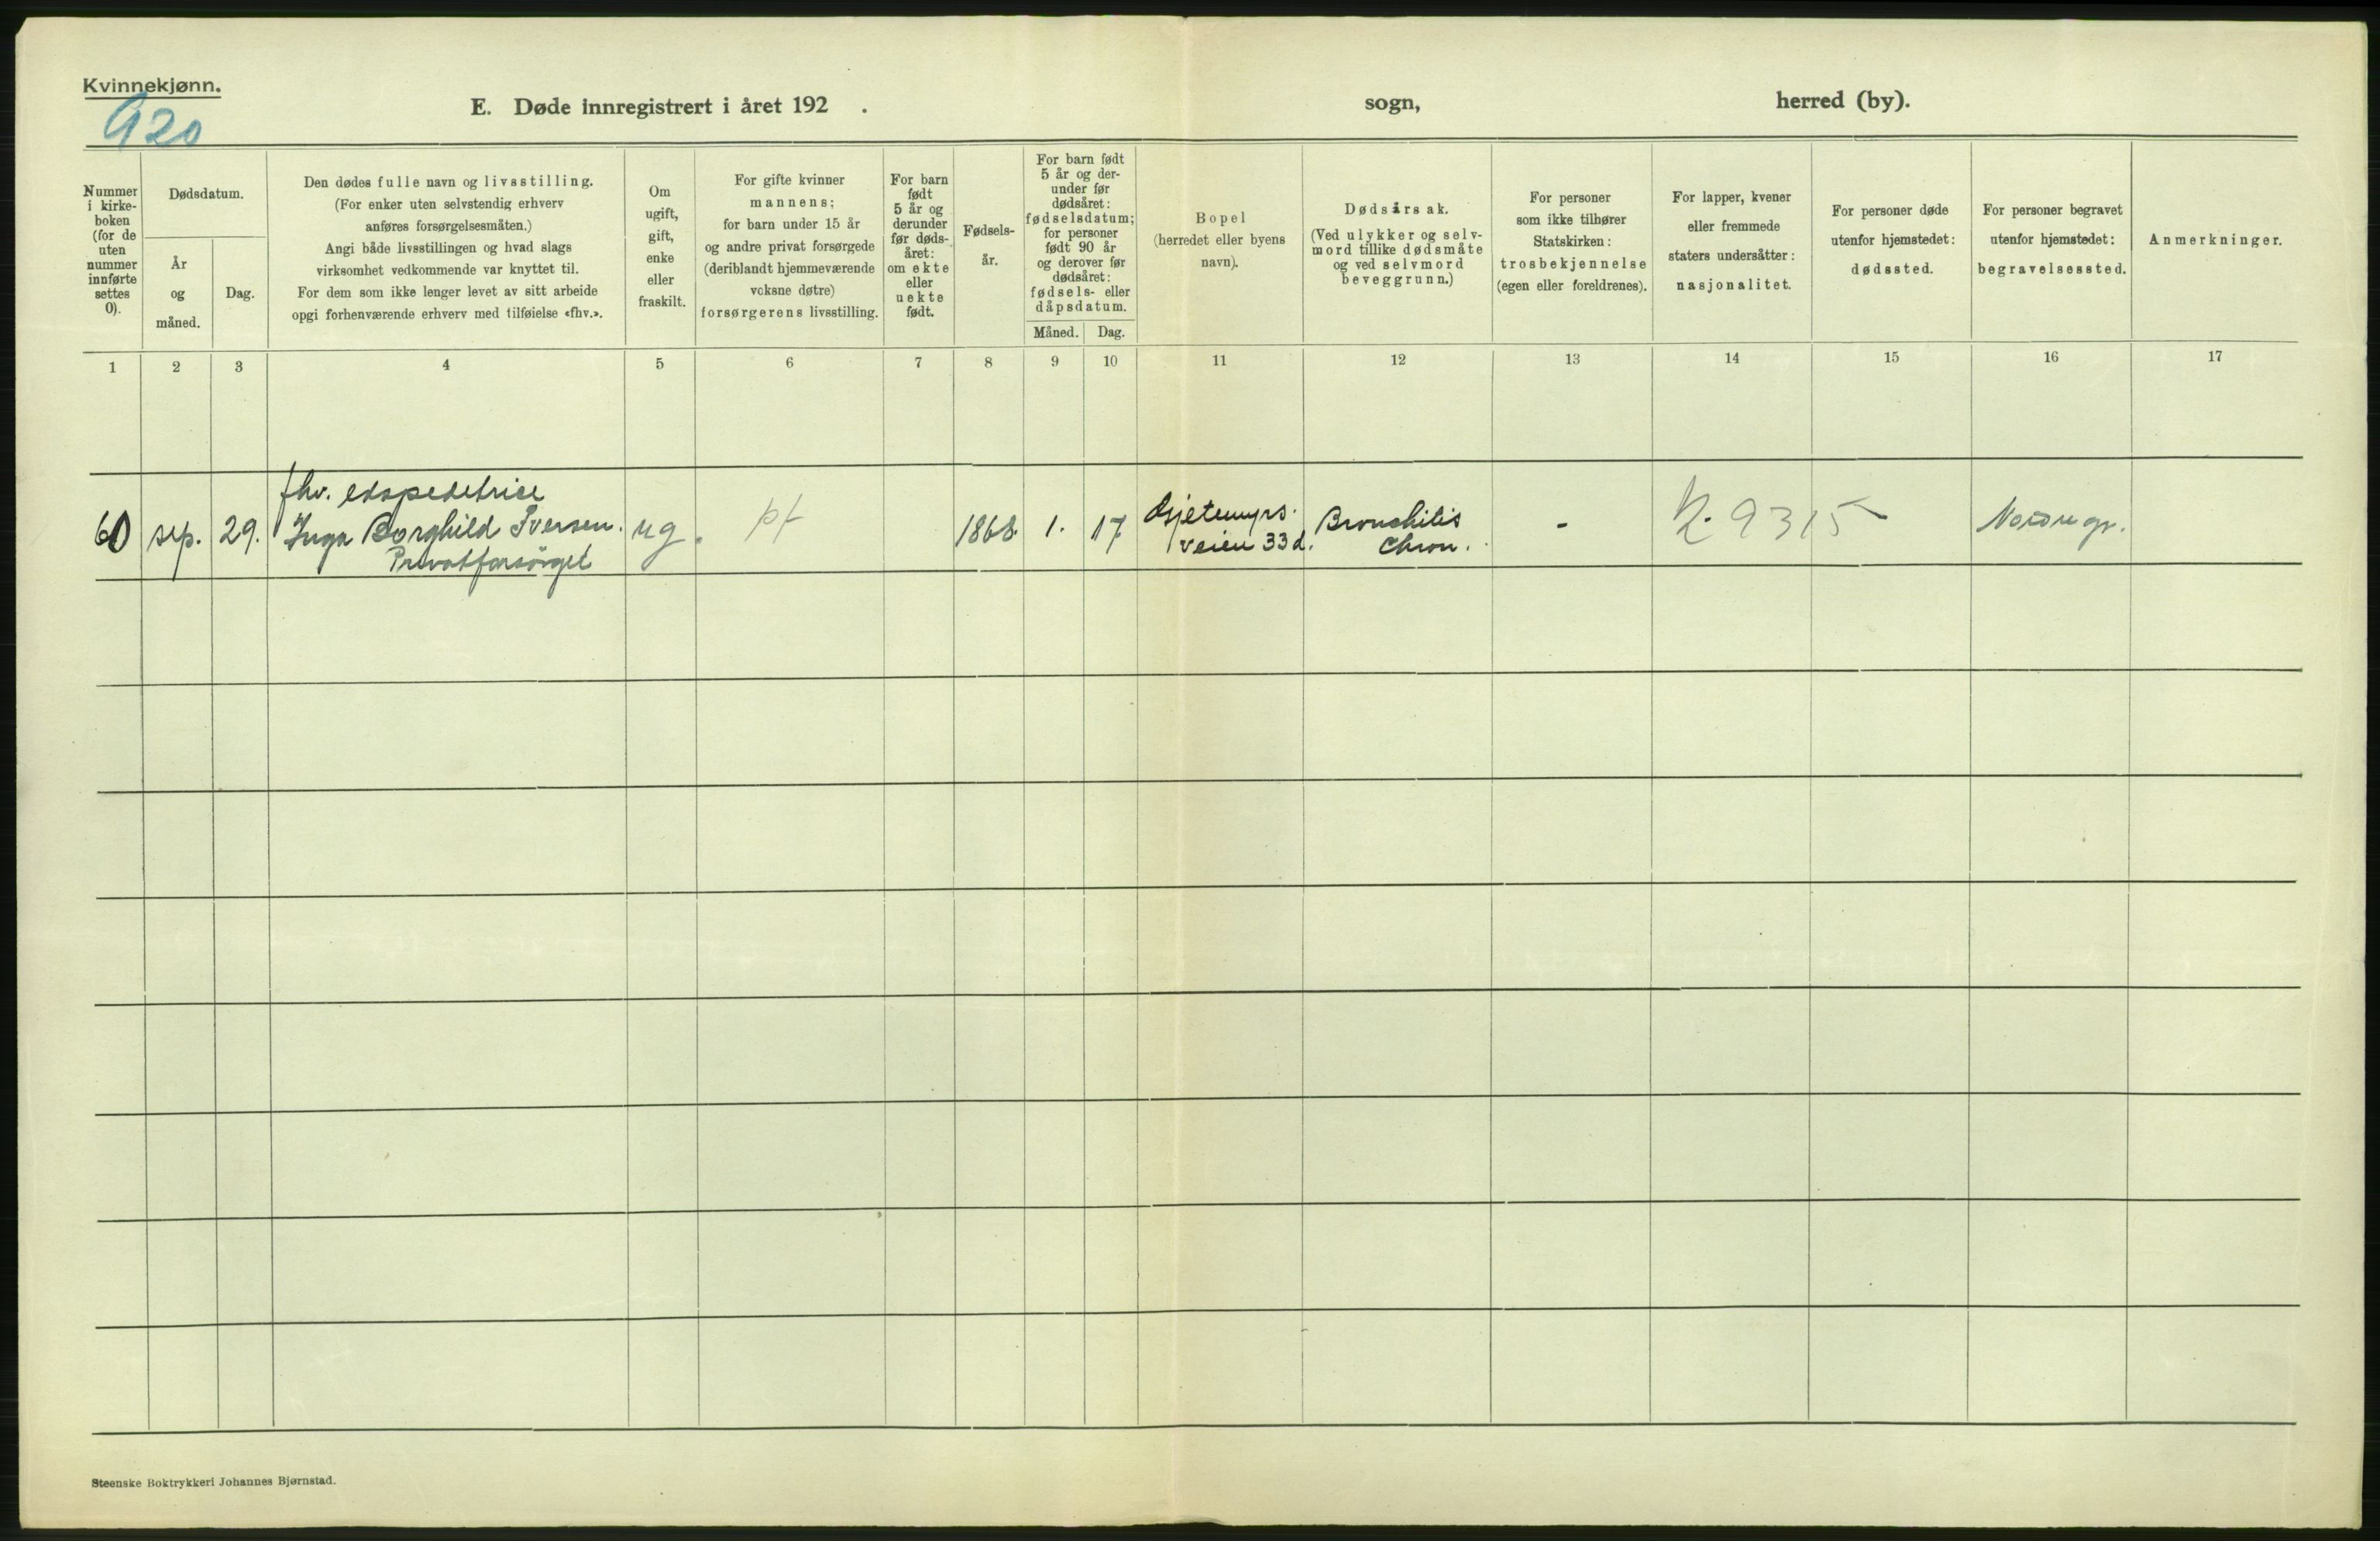 Kvinnekjønn.
920
E. Døde innregistrert i året 192 . sogn, herred (by).
Nummer i kirke-boken (for de uten nummer innførte settes 0).
Dødsdatum.
År og måned.
Dag.
Den dødes fulle navn og livsstilling.
(For enker uten selvstendig erhverv
anføres forsørgelsesmåten.)
Angi både livsstillingen og hvad slags
virksomhet vedkommende var knyttet til.
For dem som ikke lenger levet av sitt arbeide
opgi forhenværende erhverv med tilføielse «fhv.».
Om
ugift,
gift,
enke
eller
fraskilt.
For gifte kvinner
mannens;
for barn under 15 år
og andre privat forsørgede
(deriblandt hjemmeværende
voksne døtre)
forsørgerens livsstilling.
For barn
født
5 år og
derunder
før døds-
året:
om ekte
eller
uekte
født.
Fødsels-
år.
For barn født
5 år og der-
under før
dødsåret:
fødselsdatum;
for personer
født 90 år
og derover før
dødsåret:
fødsels- eller
dåpsdatum.
Måned. Dag.
Bopel
(herredet eller byens
navn).
Dødsårsak.
(Ved ulykker og selv-
mord tillike dødsmåte
og ved selvmord
beveggrunn.)
For personer
som ikke tilhører
Statskirken:
trosbekjennelse
(egen eller foreldrenes).
For lapper, kvener
eller fremmede
staters undersåtter:
nasjonalitet.
For personer døde
utenfor hjemstedet:
dødssted.
For personer begravet
utenfor hjemstedet:
begravelsessted.
Anmerkninger.
1 2 3 4 5 6 7 8 9 10 11 12 13 14 15 16 17
fhv. ekspeditrice
60 sep. 29. Inga Borghild Iversen. ug. pf 1868. 1. 17 Gjetemyrs. Bronchitis - K. 9315 Nordre gr.
Privatforsørget veien 33 d. chron.
Steenske Boktrykkeri Johannes Bjørnstad.